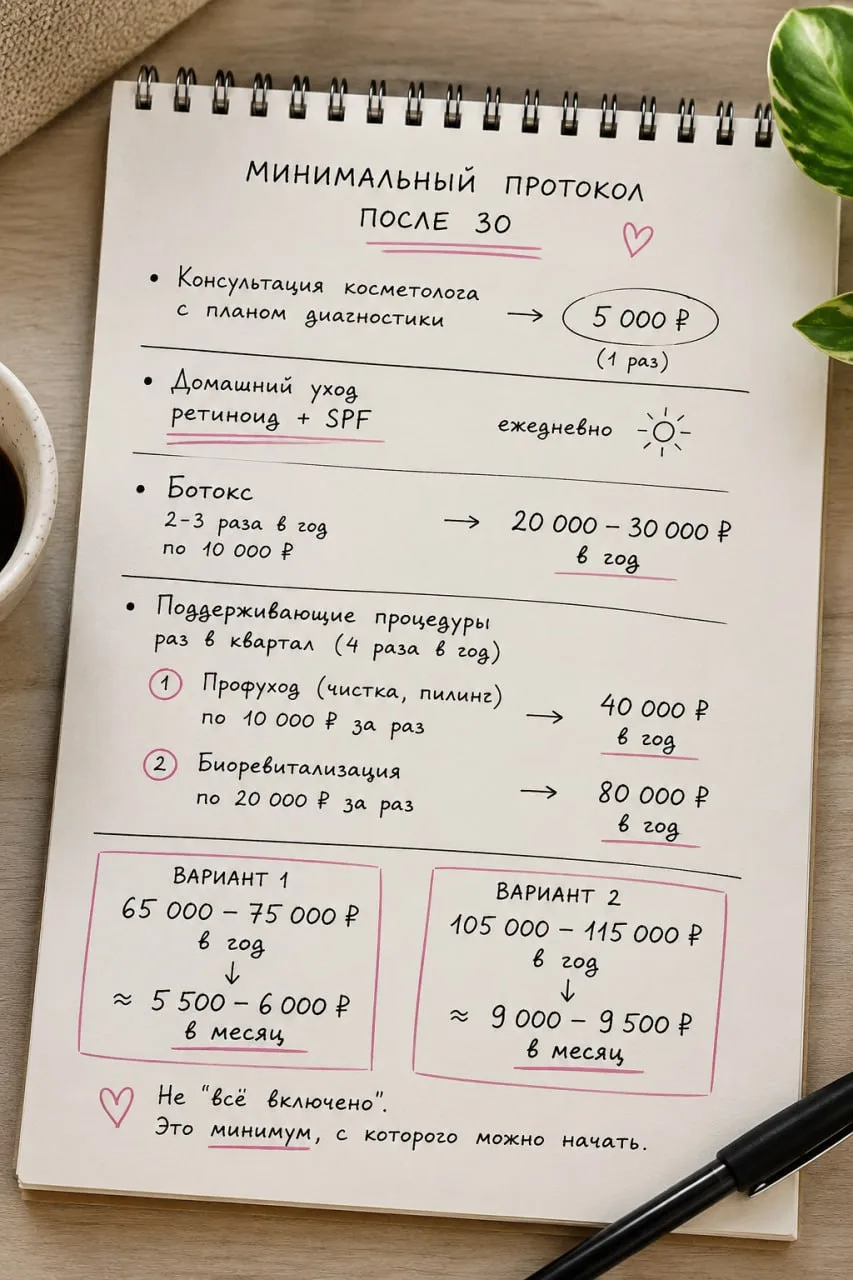 МИНИМАЛЬНЫЙ ПРОТОКОЛ
ПОСЛЕ 30
• Консультация косметолога
с планом диагностики → 5 000 ₽
(1 раз)
• Домашний уход
ретиноид + SPF
ежедневно
• Ботокс
2–3 раза в год
по 10 000 ₽
→ 20 000 – 30 000 ₽
в год
• Поддерживающие процедуры
раз в квартал (4 раза в год)
1 Профуход (чистка, пилинг)
по 10 000 ₽ за раз
→ 40 000 ₽
в год
2 Биоревитализация
по 20 000 ₽ за раз
→ 80 000 ₽
в год
ВАРИАНТ 1
65 000 – 75 000 ₽
в год
↓
≈ 5 500 – 6 000 ₽
в месяц
ВАРИАНТ 2
105 000 – 115 000 ₽
в год
↓
≈ 9 000 – 9 500 ₽
в месяц
Не "всё включено".
Это минимум, с которого можно начать.